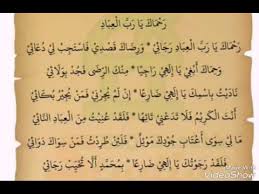 رَحْمَاكَ يَا رَبَّ الْعِبَادِ
رَحْمَاكَ يَا رَبَّ الْعِبَادِ رَجَائِي * وَرِضَاكَ قَصْدِي فَاسْتَجِبْ لِي دُعَائِي
وَحِمَاكَ أَبْغِي يَا إِلٰهِي رَاجِيًا * مِنْكَ الرِّضَى فَجُدْ بِوَلَائِي
نَادَيْتُ بِاسْمِكَ يَا إِلٰهِي ضَارِعًا * إِنْ لَمْ تُجِرْنِي فَمَنْ يُجِيرُ بُكَائِي
أَنْتَ الْكَرِيمُ فَلَا تَدَعْنِي تَائِهًا * فَلَقَدْ عَيِيتُ مِنَ الْعِبَادِ النَّائِي
مَا لِي سِوَى أَعْتَابِ جُودِكَ مَوْئِلٌ * فَلَئِنْ طُرِدْتُ فَمَنْ سِوَاكَ دَوَائِي
فَلَقَدْ رَجَوْتُكَ يَا إِلٰهِي ضَارِعًا * بِمُحَمَّدٍ أَلَّا تُخَيِّبَ رَجَائِي
VideoShow